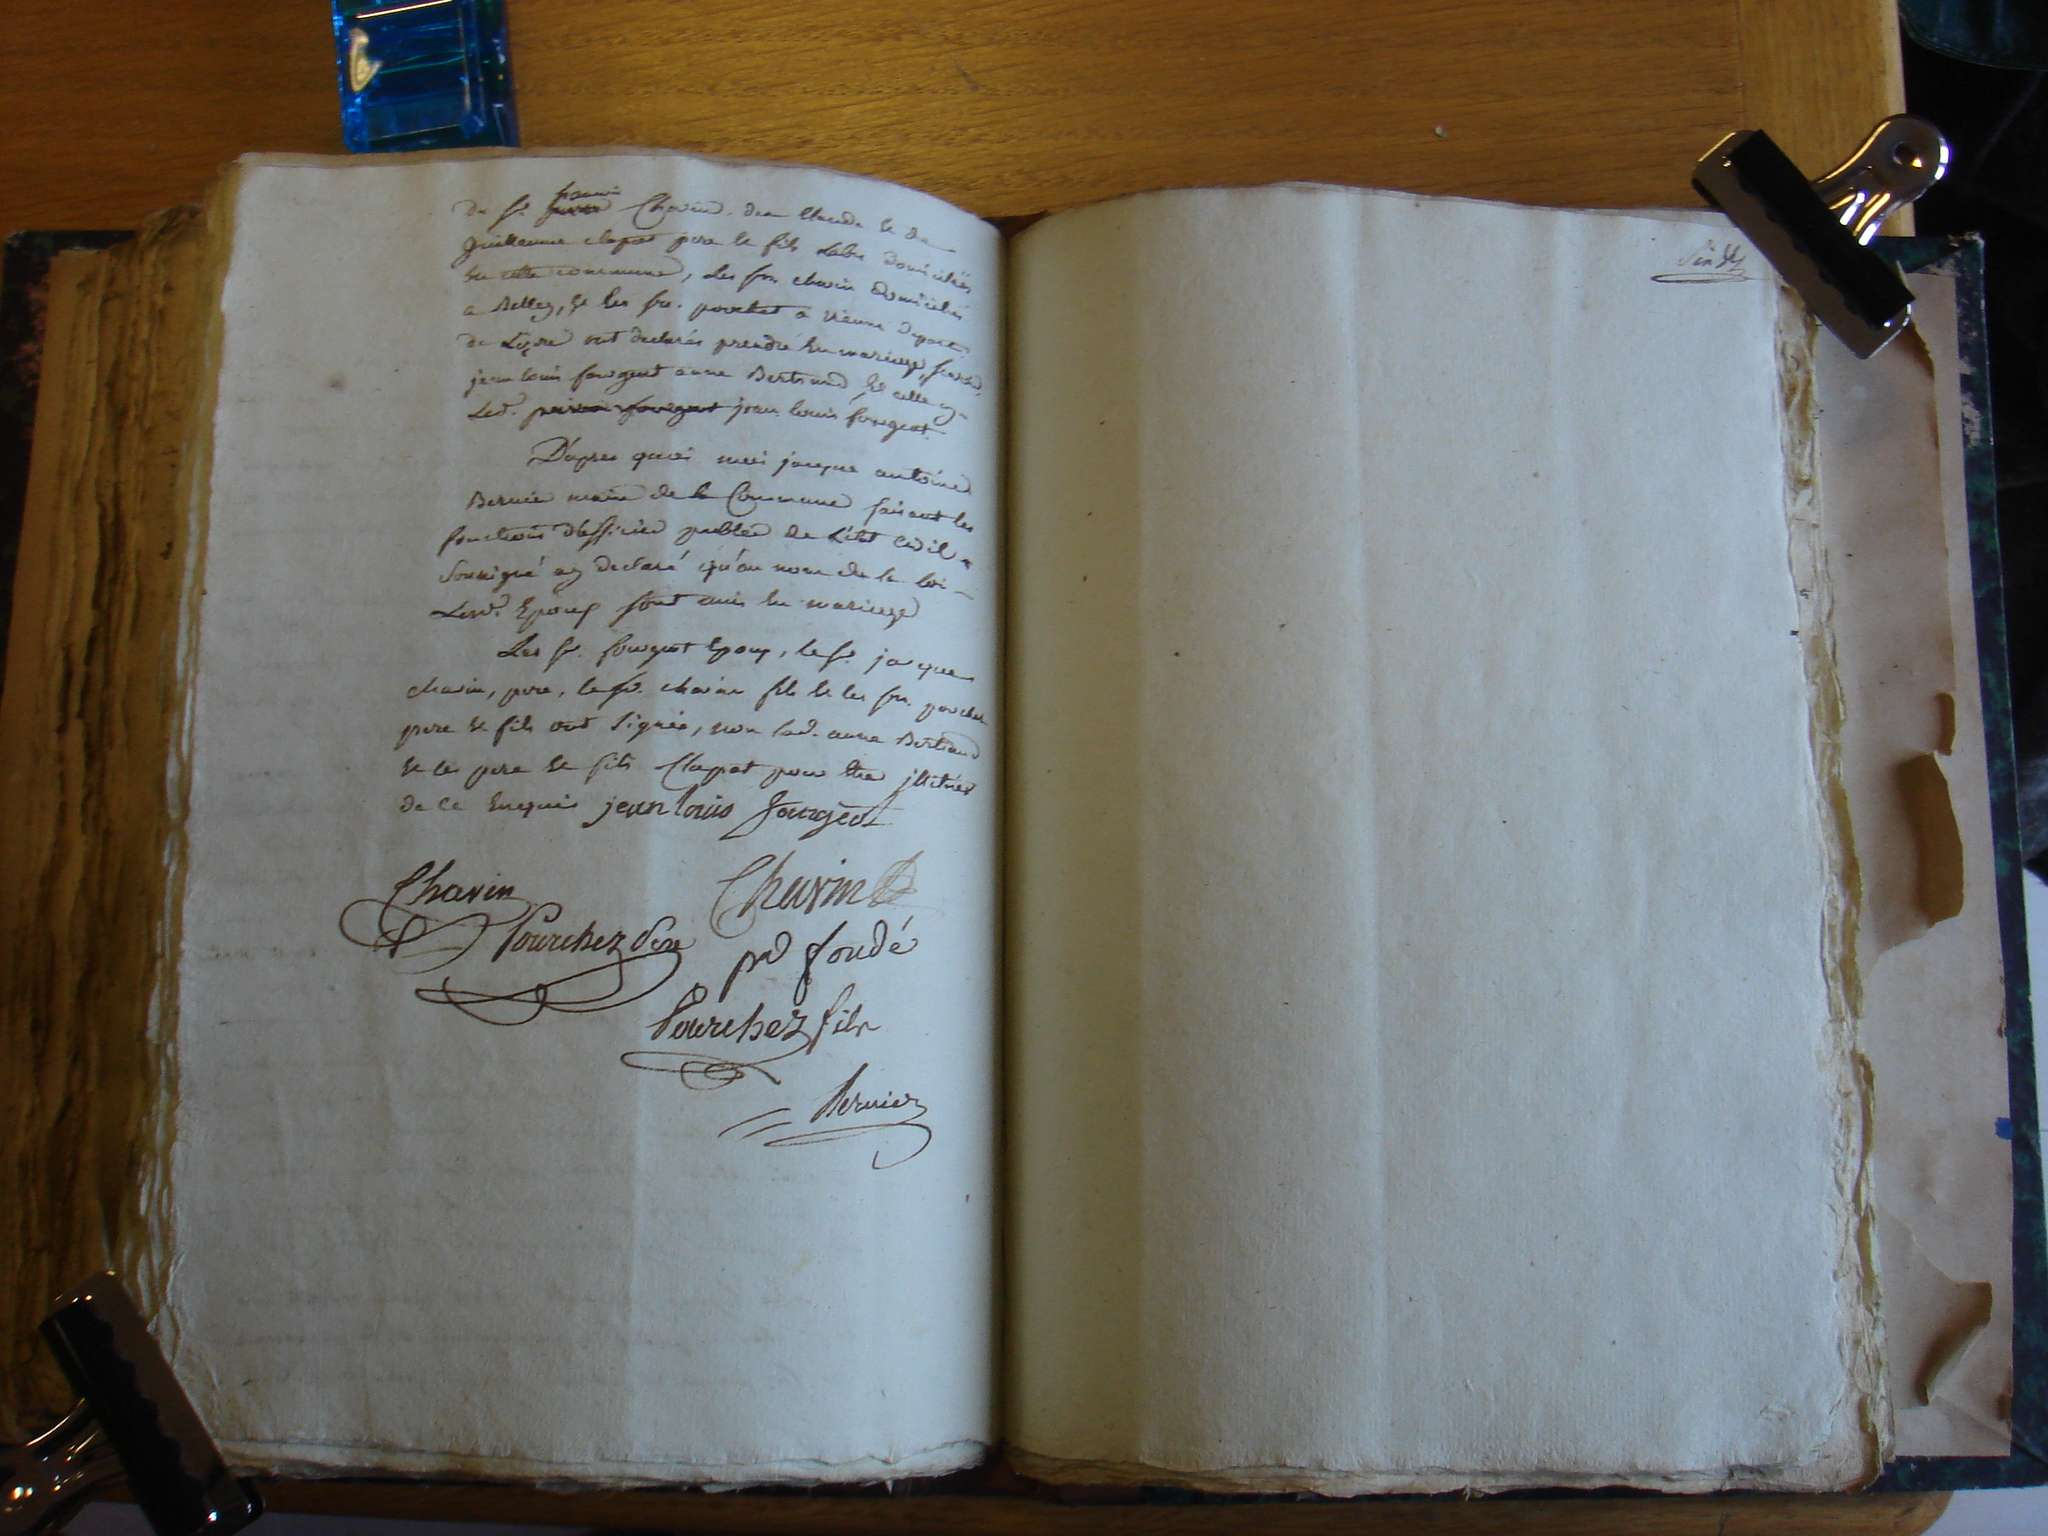 de Sr. francois Chavin, de Claude et de
Guillaume clapot pere et fils domiciliés
en cette commune, les srs. chavin domiciliés
a Belley, et les srs. pourchet a vienne depart.
de Lizere ont declarés prendre en mariage,
jean louis fourgeot anne Bertrand, et celle cy
Led. jean louis fourgeot.
D'apres quoi moi jacque antoine
Bernier maire de la Commune faisant les
fonctions d'officier public de L'etat Civil
Soussigné ay declaré qu'au nom de la loi
Lesd. Epoux sont unis en mariage
Les sr. fourgeot Epoux, le sr. jacque
chavin, pere, le sr. chavin fils et les srs. pourchet
pere et fils ont signés, non lad. anne Bertrand
et les pere et fils Clapot pour etre illitérés
de ce Enquis jean louis fourgeot
Chavin Chavin
Pourchez Pere
pd fondé
Pourchez fils
Bernier